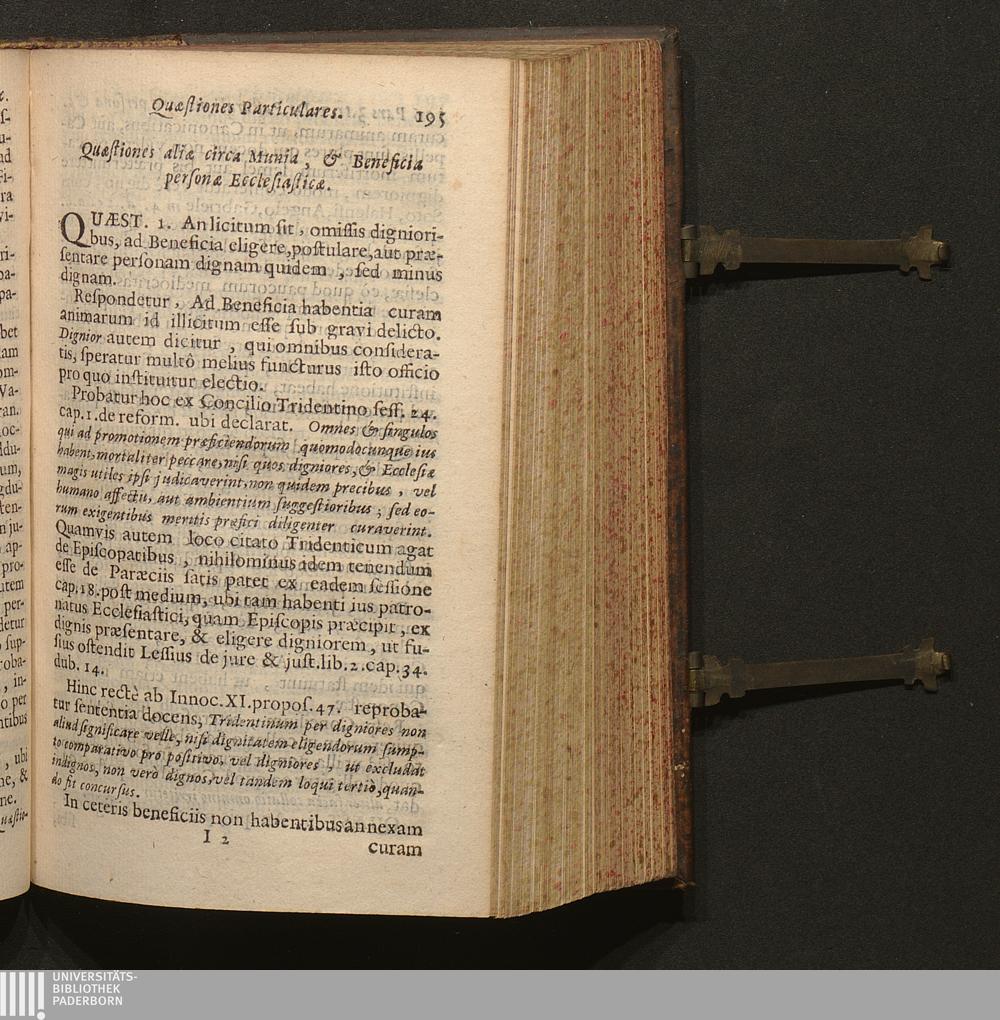 Quæſtiones Particulares. 195
Quæſtiones aliæ circa Munia, & Beneficia
perſonæ Eccleſiaſticæ.
QUÆST. 1. An licitum ſit, omiſſis digniori-
bus, ad Beneficia eligere, poſtulare, aut præ-
ſentare perſonam dignam quidem, ſed minus
dignam.
Reſpondetur, Ad Beneficia habentia curam
animarum id illicitum eſſe ſub gravi delicto.
Dignior autem dicitur, qui omnibus conſidera-
tis, ſperatur multô melius functurus iſto officio
pro quo inſtituitur electio.
Probatur hoc ex Concilio Tridentino ſeſſ. 24.
cap. 1. de reform. ubi declarat. Omnes & ſingulos
qui ad promotionem præficiendorum quomodocunque ius
habent, mortaliter peccare, niſi quos digniores, & Eccleſiæ
magis utiles ipſi judicaverint, non quidem precibus, vel
humano affectu, aut ambientium ſuggeſtioribus; ſed eo-
rum exigentibus meritis præfici diligenter curaverint.
Quamvis autem loco citato Tridenticum agat
de Epiſcopatibus, nihilominus idem tenendum
eſſe de Paræciis ſatis patet ex eadem ſeſſione
cap. 18. poſt medium, ubi tam habenti ius patro-
natus Eccleſiaſtici, quam Epiſcopis præcipit, ex
dignis præſentare, & eligere digniorem, ut fu-
ſius oſtendit Leſſius de jure & juſt. lib. 2. cap. 34.
dub. 14.
Hinc rectè ab Innoc. XI. propoſ. 47. reproba-
tur ſententia docens, Tridentinum per digniores non
aliud ſignificare velle, niſi dignitatem eligendorum ſump-
to comparativo pro poſitivo, vel digniores, ut excludat
indignos, non verò dignos, vel tandem loqui tertiò, quan-
do fit concurſus.
In ceteris beneficiis non habentibus annexam
I 2 curam
UNIVERSITÄTS-
BIBLIOTHEK
PADERBORN